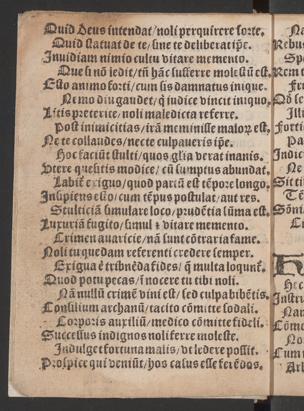 Quid Deus intendat / noli perquirere sorte.
Quid statuat de te / sine te deliberat ip̄e.
Inuidiam nimio cultu vitare memento.
Que si nō ledit / tñ hāc sufferre molestū est.
Esto animo forti / cum sis damnatus inique.
Nemo diu gaudet / q̄ iudice vincit iniquo.
Litis preterite / noli maledicta referre.
Post inimicitias / irā meminisse malorꝫ est.
Ne te collaudes / nec te culpaueris ip̄e.
Hoc faciūt stulti / quos gl̄ia verat inanis.
Utere quesitis modice / cū sumptus abundat.
Labit̄ exiguo / quod partū est tēpore longo.
Insipiens esto / cum tēpus postulat / aut res.
Stulticiā simulare loco / prudētia sūma est.
Luxuriā fugito / simul ⁊ vitare memento.
Crimen auaricie / nā sunt cōtraria fame.
Noli tu quedam referenti credere semper.
Exigua ē tribuēda fides / q̄ multa loquunt̄.
Quod potu pecas / ignoscere tu tibi noli.
Nā nullū crimē vini est / sed culpa bibētis.
Consilium archanū / tacito cōmitte sodali.
Corporis auxiliū / medico cōmitte fideli.
Successus indignos noli ferre moleste.
Indulget fortuna malis / vt ledere possit.
Prospice qui veniūt / hos casus esse ferēdos.